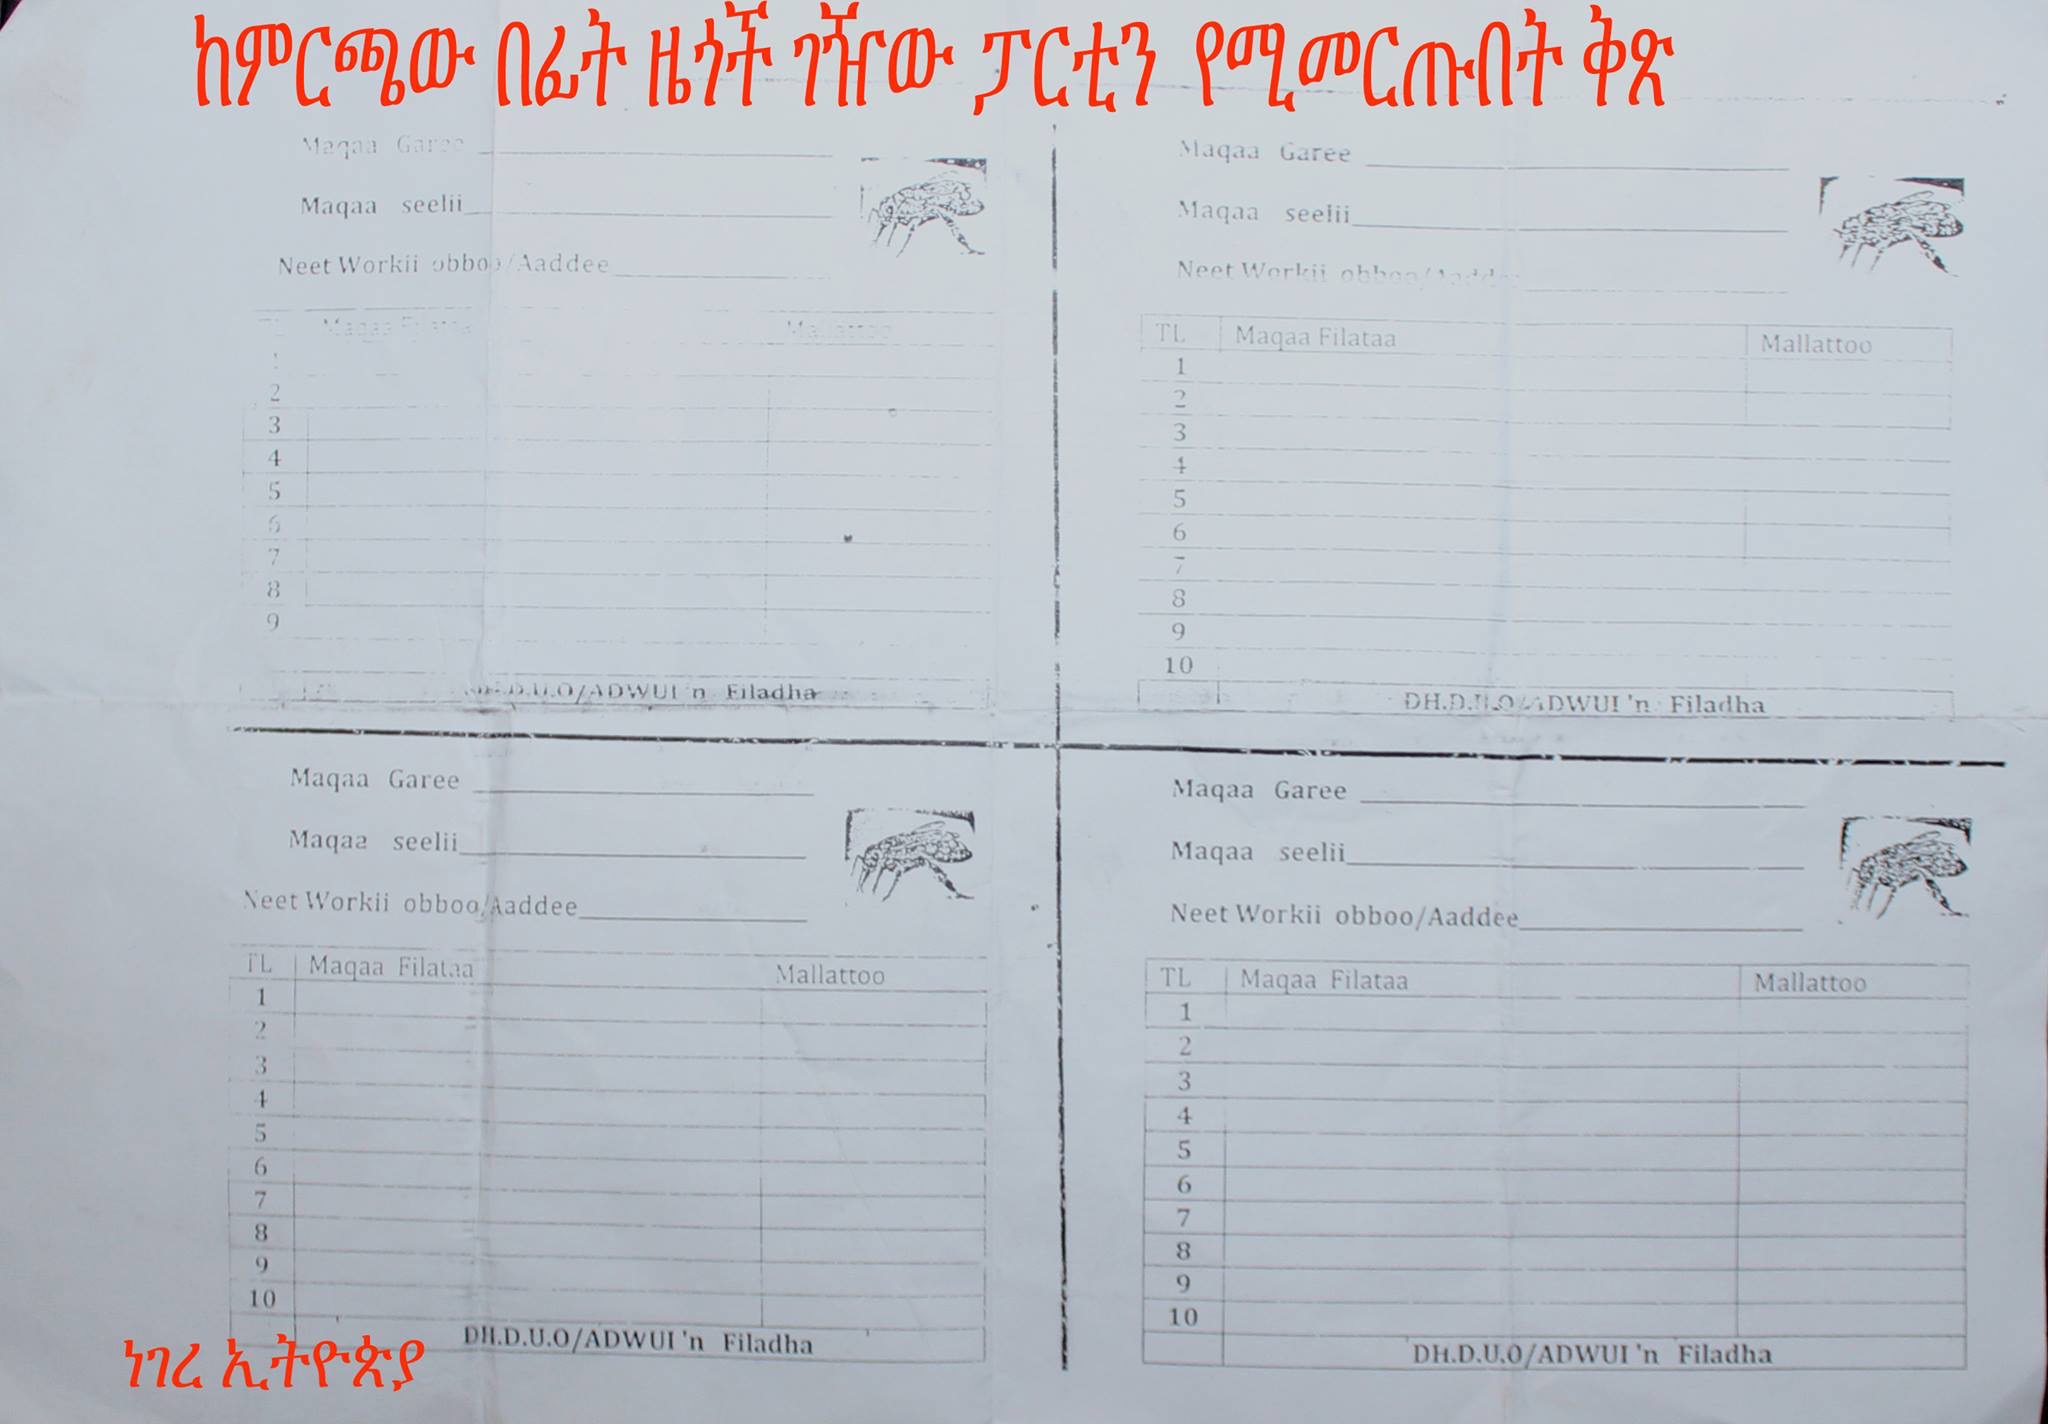 ከምርጫው በፊት ዜጎች ገዥው ፓርቲን የሚመርጡበት ቅጽ
Maqaa Garee
Maqaa seelii
Neet Workii obboo/Aaddee
TL Maqaa Filataa Mallattoo
1
2
3
4
5
6
7
8
9
DH.D.U.O/ADWUI 'n Filadha
Maqaa Garee
Maqaa seelii
Neet Workii obboo/Aaddee
TL Maqaa Filataa Mallattoo
1
2
3
4
5
6
7
8
9
10
DH.D.U.O/ADWUI 'n Filadha
Maqaa Garee
Maqaa seelii
Neet Workii obboo/Aaddee
TL Maqaa Filataa Mallattoo
1
2
3
4
5
6
7
8
9
10
DH.D.U.O/ADWUI 'n Filadha
Maqaa Garee
Maqaa seelii
Neet Workii obboo/Aaddee
TL Maqaa Filataa Mallattoo
1
2
3
4
5
6
7
8
9
10
DH.D.U.O/ADWUI 'n Filadha
ነገረ ኢትዮጵያ